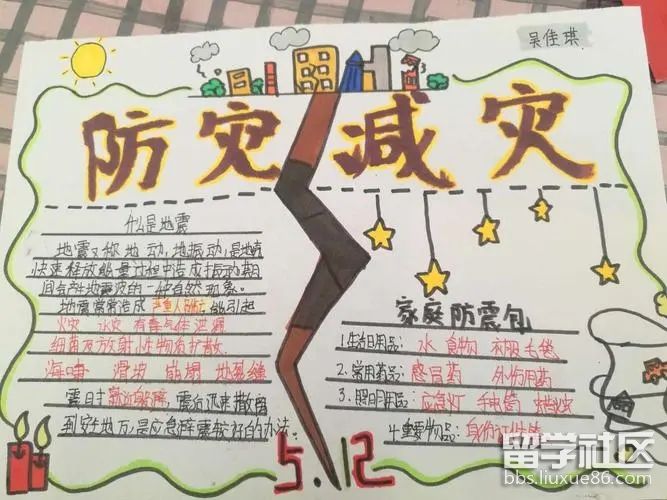 吴佳琪
防灾减灾
什么是地震
地震又称地动,地振动,是地壳
快速释放能量过程中造成振动,期
间会产生地震波的一种自然现象。
地震常常造成严重人员伤亡,能引起
火灾 水灾 有毒气体泄漏
细菌及放射性物质扩散
海啸 滑坡 崩塌 地裂缝
震时就近躲避,震后迅速撤离
到安全地方,是应急避震较好的办法。
家庭防震包
1.生活用品:水 食物 衣服毛毯
2.常用药品:感冒药 外伤用药
3.照明用品:应急灯 手电筒
4.重要物品:身份证件等
5.12
留学社区
bbs.liuxue86.com